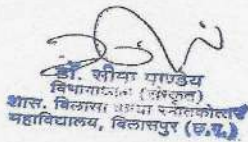 डॉ. सीया पाण्डेय
विभागाध्यक्ष (संस्कृत)
शास. बिलासा कन्या स्नातकोत्तर
महाविद्यालय, बिलासपुर (छ.ग.)